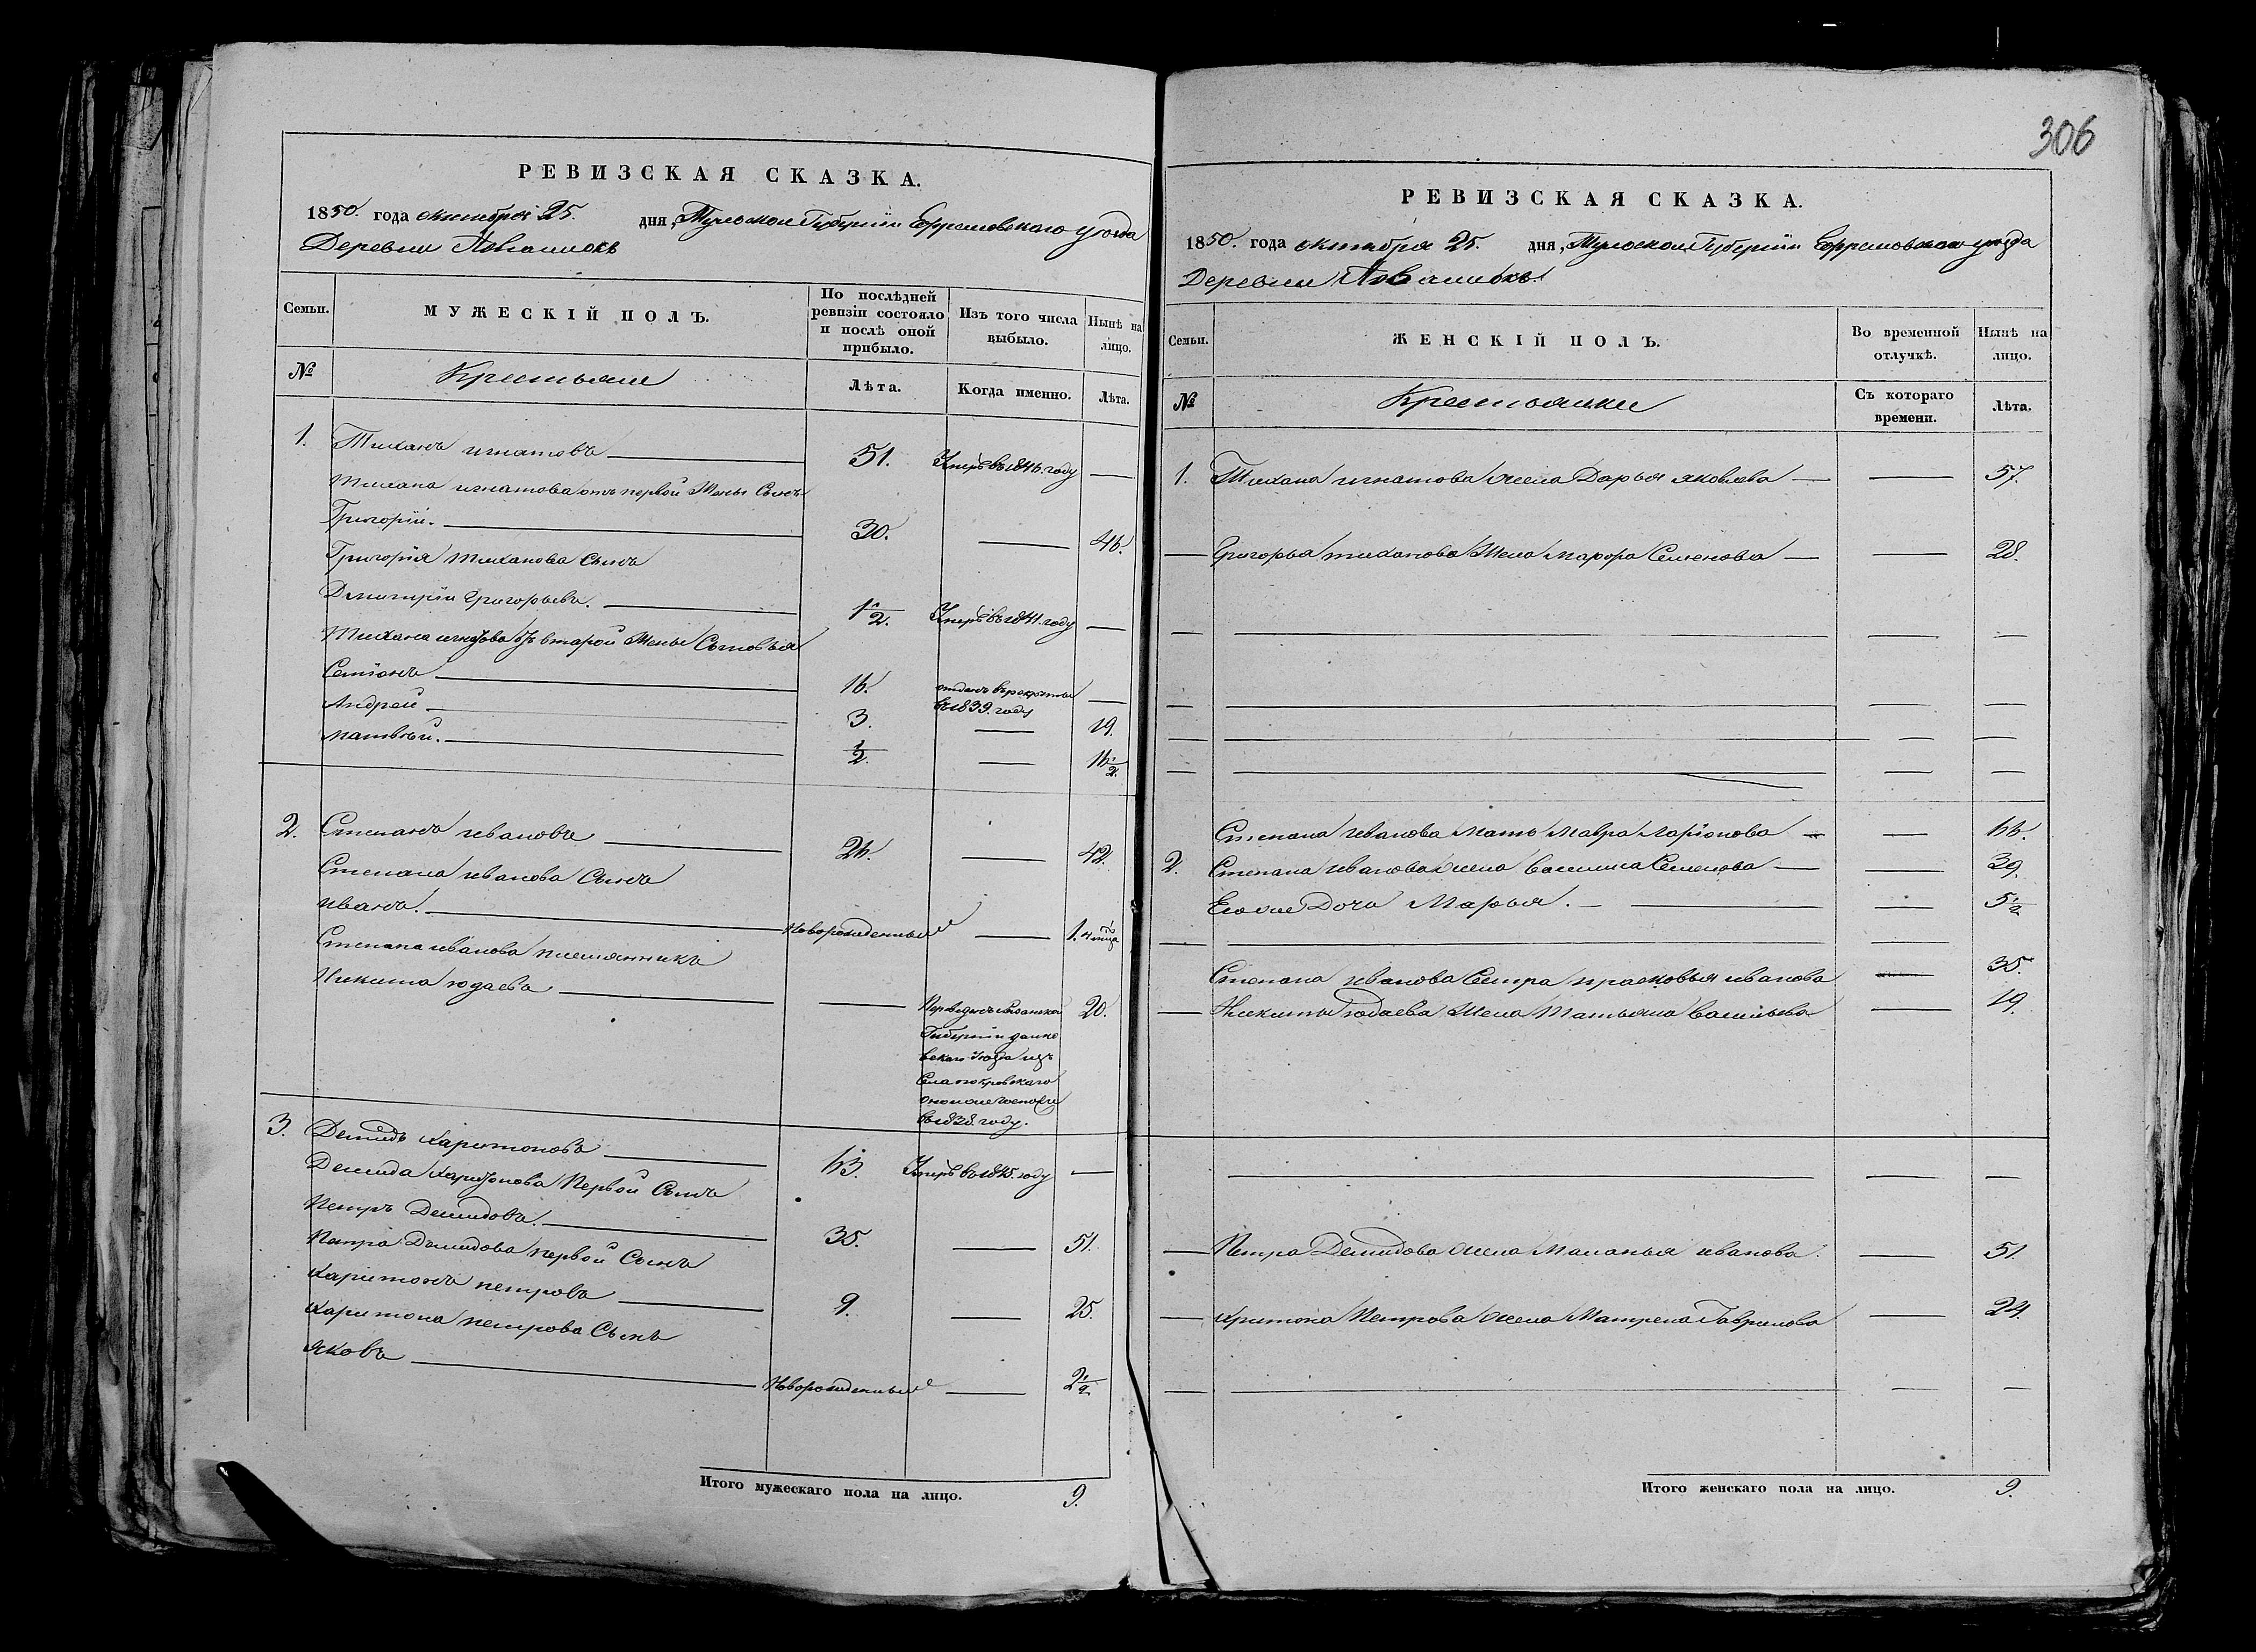 306
РЕВИЗСКАЯ СКАЗКА.
1850. года октября 25. дня, Тульской Губерніи Ефремовского уѣзда
Деревни
Семьи. МУЖЕСКІЙ ПОЛЪ. По послѣдней ревизіи состояло и послѣ оной прибыло. Изъ того числа выбыло. Нынѣ на лицо.
№ Крестьяне Лѣта. Когда именно. Лѣта.
1. Тиханъ игнатовъ 51. Умеръ въ 1846. году —
Тихана игнатова отъ первой Жены Сынъ
Григорій. 30. — 46.
Григорія Тиханова Сынъ
Дмитрій Григорьевъ. 1 1/2. Умеръ въ 1841. году —
Тихана игнатова отъ второй Жены Сыновья
Семіонъ 16. отданъ въ рекруты въ 1839. году —
Андрей 3. — 19.
матвѣй. 1/2. — 16 1/2.
2. Степанъ ивановъ 26. — 42.
Степана иванова Сынъ
иванъ. Новорожденный — 1. мѣсца
Степана иванова племянникъ
Никита юдаевъ — Переведенъ Рязанской 20.
Губерніи данко
вскаго уѣзда изъ
Села покровскаго
въ 1838. году.
3. Демидъ Харитоновъ 63. Умеръ въ 1845. году —
Демида Харитонова Первой Сынъ
Петръ Демидовъ. 35. — 51.
Петра Демидова первой Сынъ
Харитонъ петровъ 9. — 25.
Харитона петрова Сынъ
Яковъ Новорожденный — 2 1/2.
Итого мужескаго пола на лицо. 9.
РЕВИЗСКАЯ СКАЗКА.
1850. года октября 25. дня, Тульской Губерніи Ефремовскаго уѣзда
Деревни
Семьи. ЖЕНСКІЙ ПОЛЪ. Во временной отлучкѣ. Нынѣ на лицо.
№ Крестьянки Съ котораго времени. Лѣта.
1. Тихана игнатова жена Дарья яковлева — — 57.
— Григорья тиханова Жена марфа Семенова — — 28.
Степана иванова Мать Мавра Ларіонова — — 66.
2. Степана иванова жена Василиса Семенова — — 39.
Дочь Марья. — — 5 1/2
Степана иванова Сестра прасковья иванова — 35.
— Никиты юдаева Жена Татьяна Васильева — 19.
— Петра Демидова жена Маланья иванова. — 51.
— Хритона Петрова жена Матрена Гаврилова — 24.
Итого женскаго пола на лицо. 9.